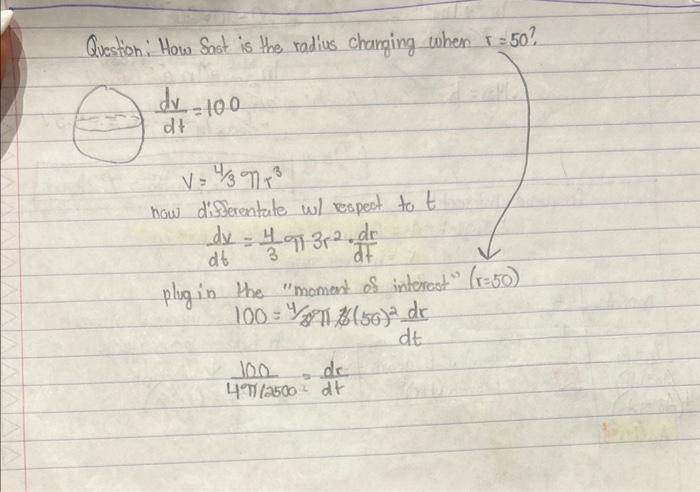 Question: How fast is the radius changing when r = 50?
dv/dt = 100
V = 4/3 π r³
now differentate w/ respect to t
dv/dt = 4/3 π 3r² · dr/dt
plug in the "moment of interest" (r=50)
100 = 4/3 π 3(50)² dr/dt
100/4π(2500 = dr/dt